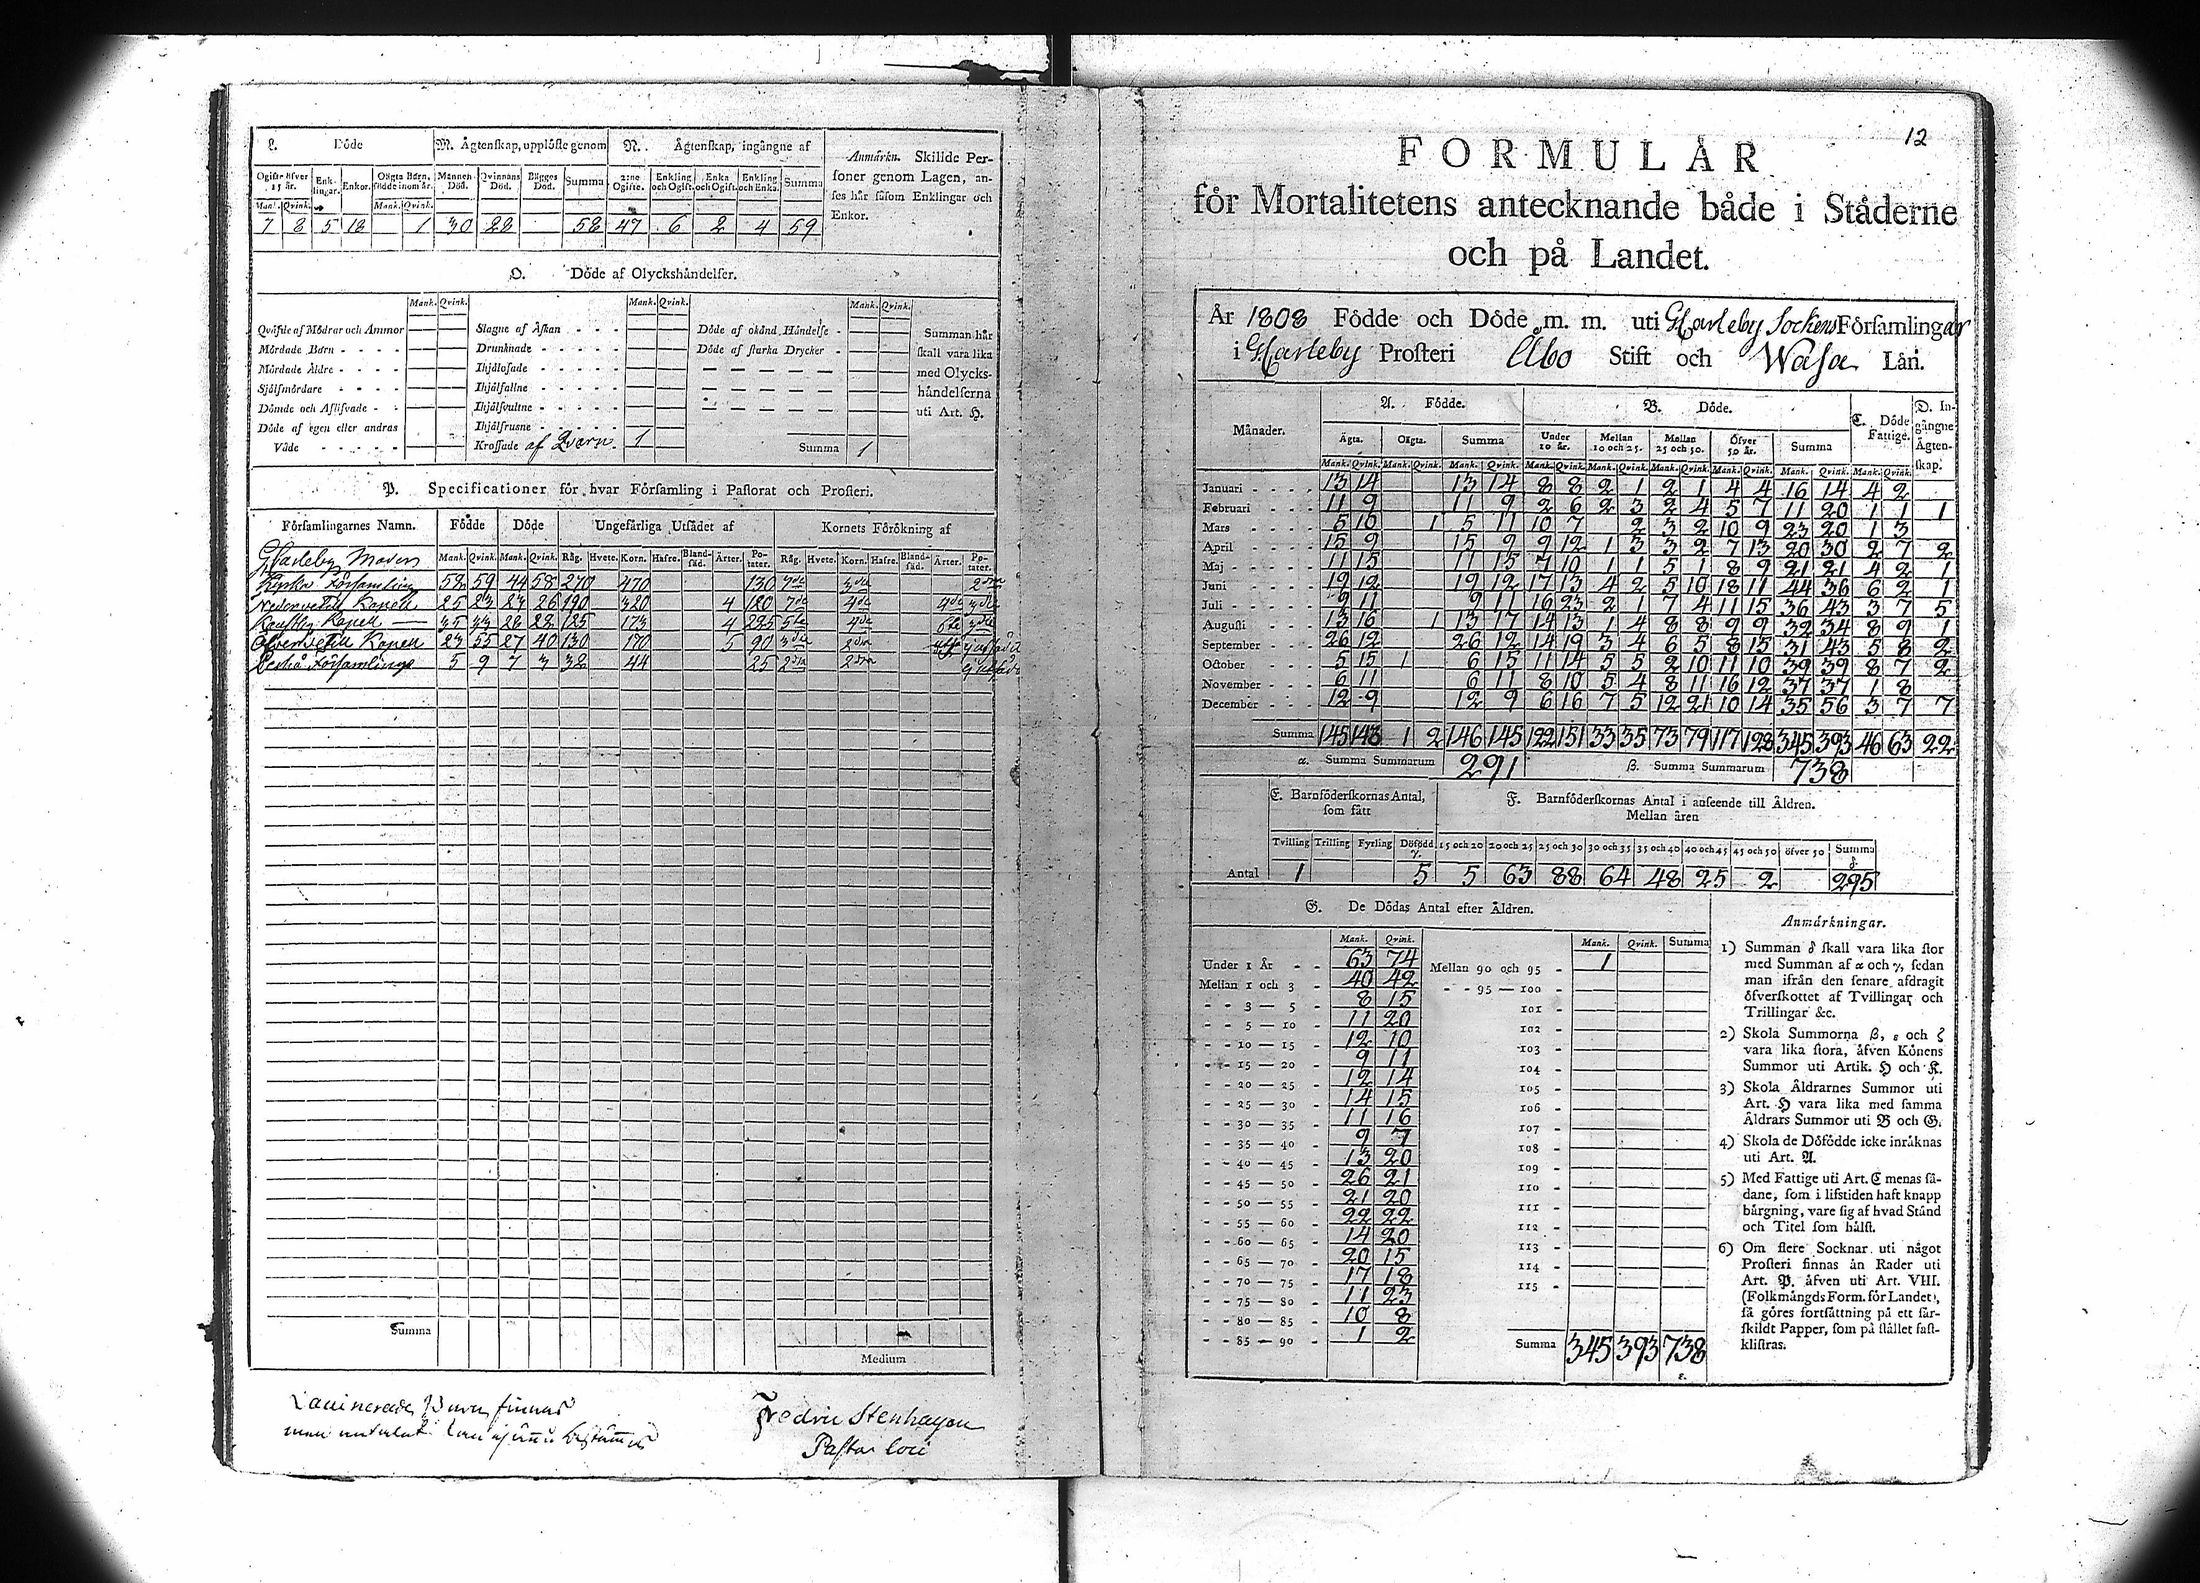 L. Döde M. Ägtenskap, upplöste genom N. Ägtenskap, ingångne af
Anmärkn. Skillde Personer genom Lagen, anses här såsom Enklingar och Enkor.
Ogifte öfver 15 år. Enklingar. Enkor. Oägta Barn, födde inom år. Mannens Död. Qvinnans Död. Bägges Död. Summa 2:ne Ogifte. Enkling och Ogift. Enka och Ogift. Enkling och Enka. Summa
Mank. Qvink. Mank. Qvink.
7 8 5 18 1 30 28 58 47 6 2 4 59
O. Döde af Olyckshändelser.
Mank. Qvink. Mank. Qvink. Mank. Qvink.
Qväfde af Mödrar och Ammor Slagne af Åskan Döde af okänd Händelse Summan här
Mördade Barn Drunknade Döde af starka Drycker skall vara lika
Mördade Äldre Ihjälosade med Olycks-
Sjelfmördare Ihjälfallne händelserna
Dömde och Aflifvade Ihjälsvultne uti Art. H.
Döde af egen eller andras Ihjälfrusne
Våde Krossade af Qvarn 1 Summa 1
P. Specificationer för hvar Församling i Pastorat och Prosteri.
Församlingarnes Namn. Födde Döde Ungefärliga Utsädet af Kornets Förökning af
Mank. Qvink. Mank. Qvink. Råg. Hvete. Korn. Hafre. Blandsäd. Ärter. Potater. Råg. Hvete. Korn. Hafre. Blandsäd. Ärter. Potater.
G. Carleby Moder
Kyrko Församling 58 59 44 58 270 470 130 2dra
Nedervetill Kapell 25 23 23 26 190 320 4 180 7de 4de 4de 3die
Kaustby Kapell 35 33 28 28 125 173 4 285 5te 4de 6te 3die
Öfvervetill Kapell 23 55 27 40 130 170 5 90 3die 2dra
Perhå Församlinge 5 9 7 3 32 44 25 2dra 2dra
Summa
Medium
Fredric Stenhagen
Pastor loci
12
FORMULÄR
för Mortalitetens antecknande både i Städerne
och på Landet.
År 1808 Födde och Döde m. m. uti G. Carleby Sockens Församlingar
i G. Carleby Prosteri Åbo Stift och Wasa Län.
Månader. A. Födde. B. Döde. C. Döde Fattige. D. Ingångne Ägtenskap.
Ägta. Oägta. Summa Under 10 år. Mellan 10 och 25. Mellan 25 och 50. Öfver 50 år. Summa
Mank. Qvink. Mank. Qvink. Mank. Qvink. Mank. Qvink. Mank. Qvink. Mank. Qvink. Mank. Qvink. Mank. Qvink. Mank. Qvink.
Januari 13 14 13 14 8 8 2 1 2 1 4 4 16 14 4 2
Februari 11 9 11 9 2 6 2 3 2 4 5 7 11 20 1 1 1
Mars 5 10 1 5 11 10 7 2 3 2 10 9 23 20 1 3
April 15 9 15 9 9 12 1 3 3 2 7 13 20 30 2 7 2
Maj 11 15 11 15 7 10 1 1 5 1 8 9 21 21 4 2 1
Juni 19 12 19 12 17 13 4 2 5 10 18 11 44 36 6 2 1
Juli 9 11 9 11 16 23 2 1 7 4 11 15 36 43 3 7 5
Augusti 13 16 1 13 17 14 13 1 4 8 8 9 9 32 34 8 9 1
September 26 12 26 12 14 19 3 4 6 5 8 15 31 43 5 8 2
October 5 15 1 6 15 11 14 5 5 2 10 11 10 39 39 8 7 2
November 6 11 6 11 8 10 5 4 8 11 16 12 37 37 1 8
December 12 9 12 9 6 16 7 5 12 21 10 14 35 56 3 7 7
Summa 145 143 1 2 146 145 122 151 33 35 73 79 117 128 345 393 46 63 22
α. Summa Summarum 291 β. Summa Summarum 738
E. Barnföderskornas Antal, som fått F. Barnföderskornas Antal i anseende till Åldren.
Mellan åren
Tvilling Trilling Fyrling Dödfödd γ. 15 och 20 20 och 25 25 och 30 30 och 35 35 och 40 40 och 45 45 och 50 öfver 50 Summa δ
Antal 1 5 5 63 88 64 48 25 2 295
G. De Dödas Antal efter Åldren.
Mank. Qvink. Mank. Qvink. Summa
Under 1 År 63 74 Mellan 90 och 95 1
Mellan 1 och 3 40 42 95 — 100
3 — 5 8 15 101
5 — 10 11 20 102
10 — 15 12 10 103
15 — 20 9 11 104
20 — 25 12 14 105
25 — 30 14 15 106
30 — 35 11 16 107
35 — 40 9 7 108
40 — 45 13 20 109
45 — 50 26 21 110
50 — 55 21 20 111
55 — 60 22 22 112
60 — 65 14 20 113
65 — 70 20 15 114
70 — 75 17 18 115
75 — 80 11 23
80 — 85 10 8
85 — 90 1 2
Summa 345 393 738
ε.
Anmärkningar.
1) Summan δ skall vara lika stor
med Summan af α och γ, sedan
man ifrån den senare afdragit
öfverskottet af Tvillingar och
Trillingar &c.
2) Skola Summorna β, ε och ζ
vara lika stora, äfven Könens
Summor uti Artik. H och K.
3) Skola Åldrarnes Summor uti
Art. H vara lika med samma
Åldrars Summor uti B och G.
4) Skola de Döfödde icke inräknas
uti Art. A.
5) Med Fattige uti Art. C menas så-
dane, som i lifstiden haft knapp
bärgning, vare sig af hvad Stånd
och Titel som hälst.
6) Om flere Socknar uti något
Prosteri finnas än Rader uti
Art. P. äfven uti Art. VIII.
(Folkmängds Form. för Landet),
så göres fortsättning på ett sär-
skildt Papper, som på stället fast-
klistras.